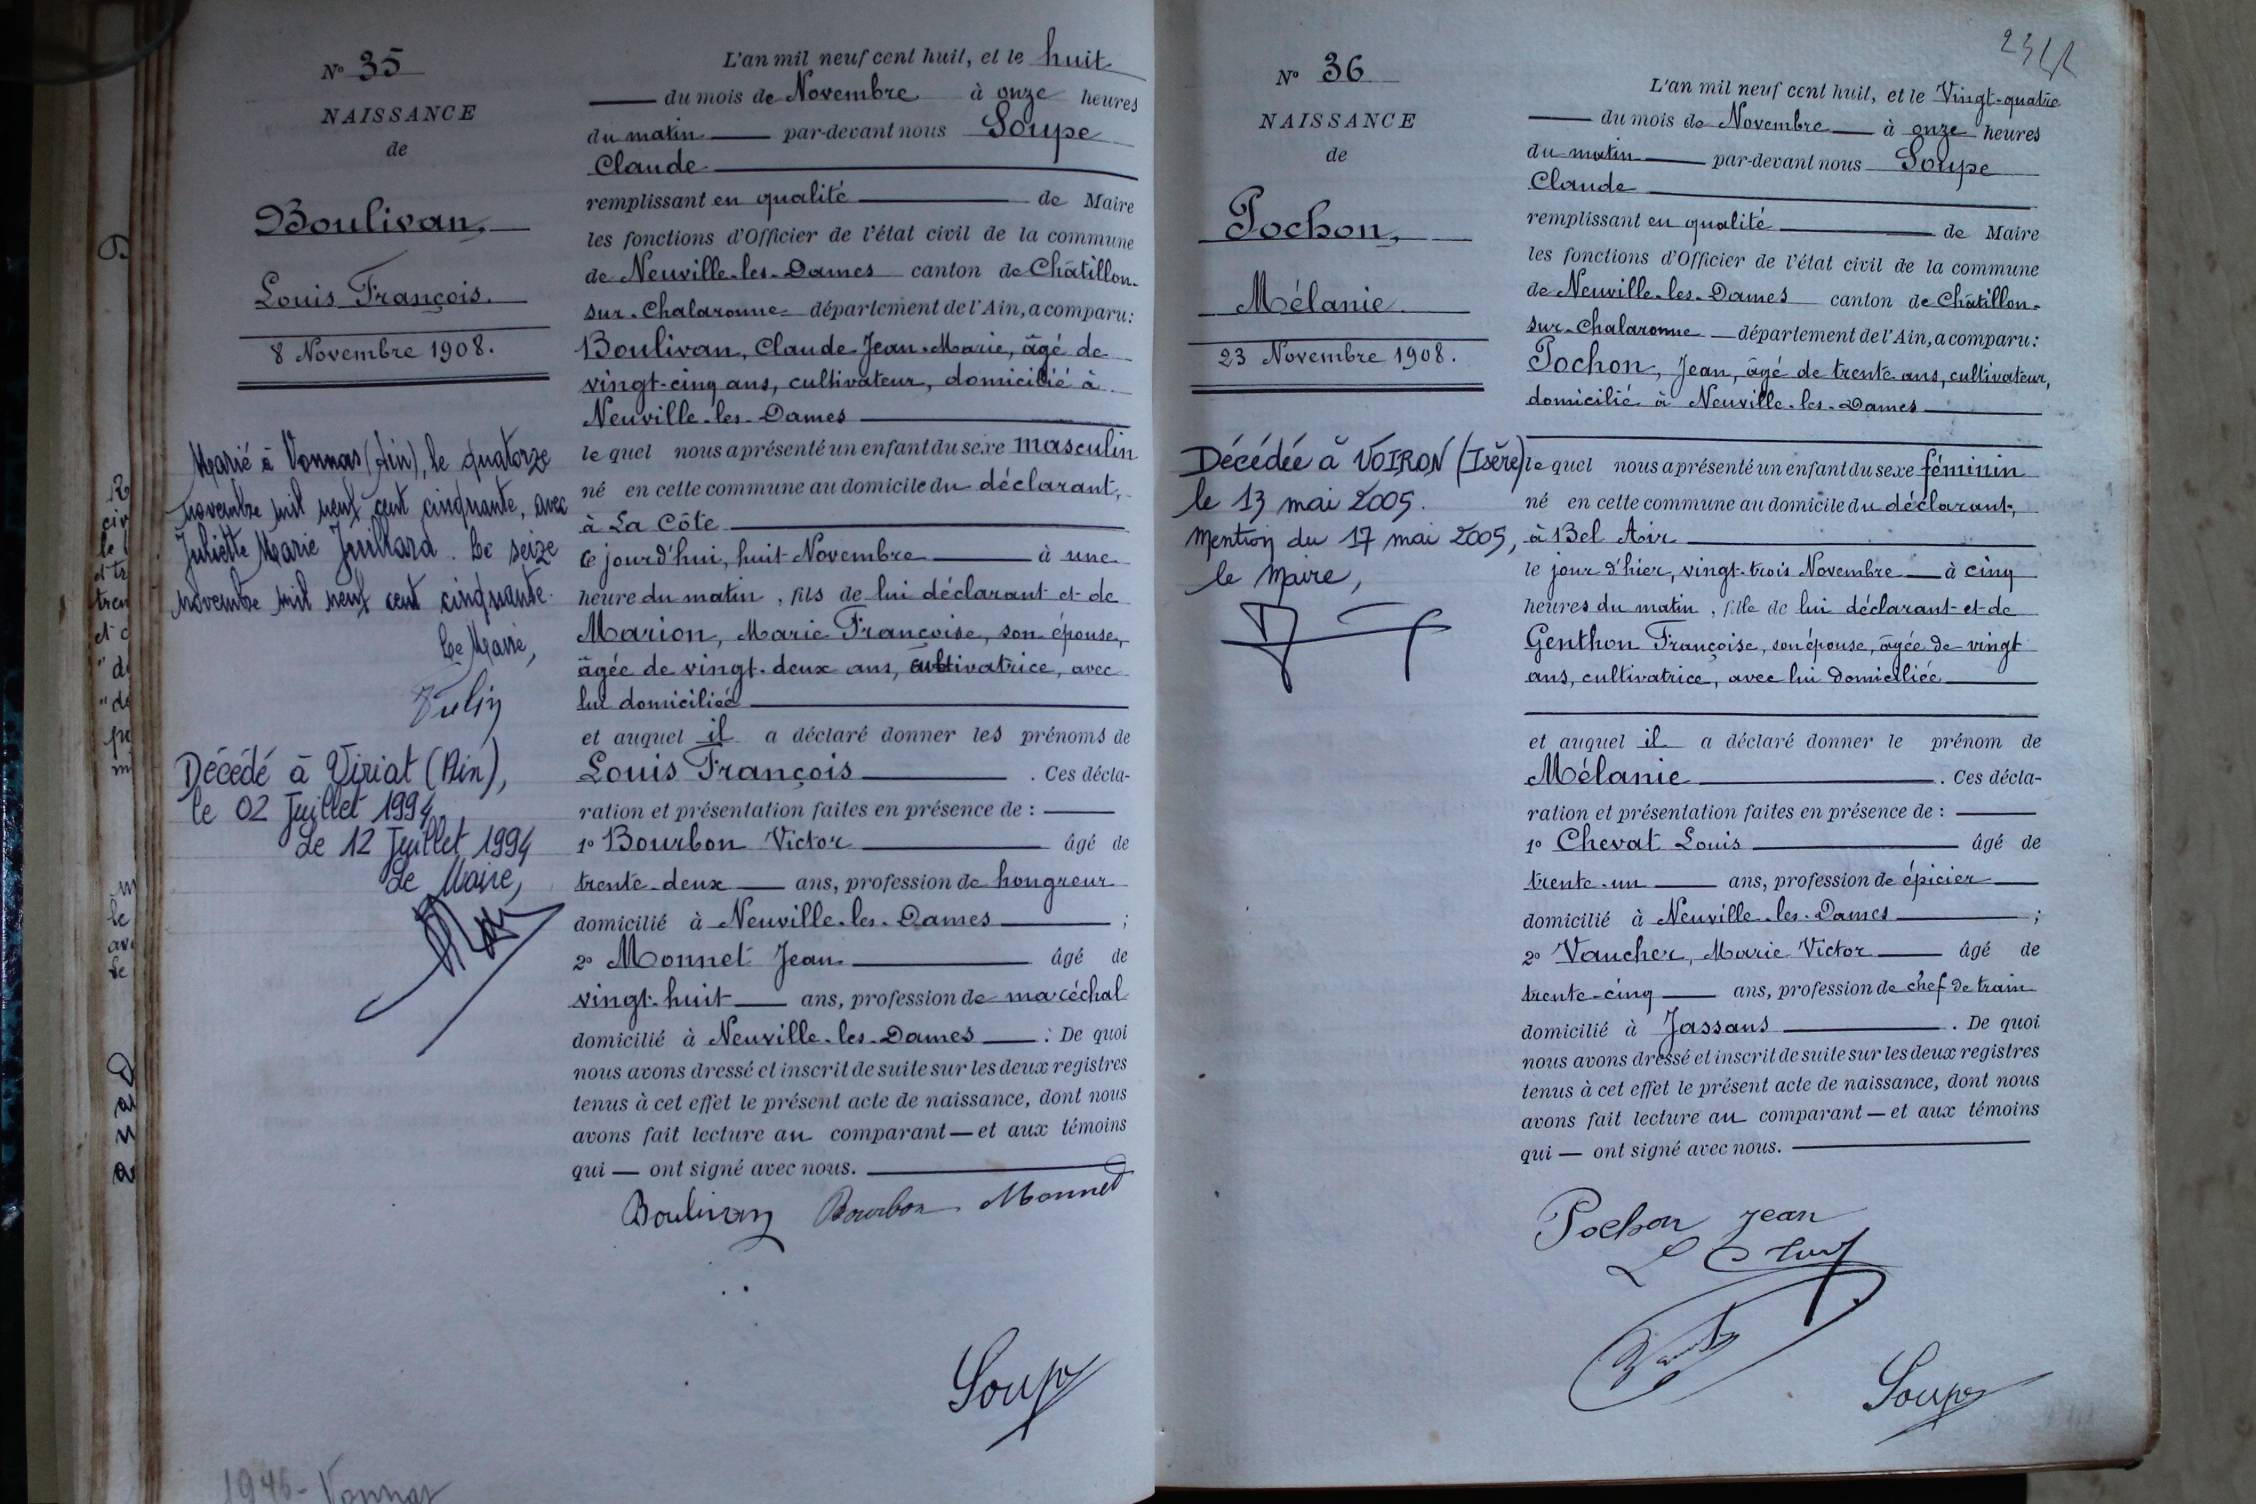 N° 35
NAISSANCE
de
Boulivan,
Louis François.
8 Novembre 1908.
Marié à Vonnas (Ain), le quatorze
novembre mil neuf cent cinquante, avec
Juliette Marie Juillard. Le seize
novembre mil neuf cent cinquante.
Le Maire,
Décédé à Viriat (Ain),
le 02 Juillet 1994
Le 12 Juillet 1994
Le Maire,
L'an mil neuf cent huit, et le huit
du mois de Novembre à onze heures
du matin par-devant nous Soupe
Claude
remplissant en qualité de Maire
les fonctions d'Officier de l'état civil de la commune
de Neuville-les-Dames canton de Châtillon-
sur-Chalaronne département de l'Ain, a comparu:
Boulivan, Claude Jean-Marie, âgé de
vingt-cinq ans, cultivateur, domicilié à
Neuville-les-Dames
le quel nous a présenté un enfant du sexe masculin
né en cette commune au domicile du déclarant,
à La Côte
ce jourd'hui, huit Novembre à une
heure du matin, fils de lui déclarant et de
Marion, Marie Françoise, son épouse,
âgée de vingt-deux ans, cultivatrice, avec
lui domiciliée
et auquel il a déclaré donner les prénoms de
Louis François. Ces décla-
ration et présentation faites en présence de :
1° Bourbon Victor âgé de
trente-deux ans, profession de hongreur
domicilié à Neuville-les-Dames ;
2° Monnet Jean âgé de
vingt-huit ans, profession de maréchal
domicilié à Neuville-les-Dames : De quoi
nous avons dressé et inscrit de suite sur les deux registres
tenus à cet effet le présent acte de naissance, dont nous
avons fait lecture au comparant — et aux témoins
qui — ont signé avec nous.
Boulivan Bourbon Monnet
Soupe
1946 - Vonnas
234
N° 36
NAISSANCE
de
Pochon,
Mélanie
23 Novembre 1908.
Décédée à VOIRON (Isère)
le 13 mai 2005.
Mention du 17 mai 2005,
le Maire,
L'an mil neuf cent huit, et le Vingt-quatre
du mois de Novembre à onze heures
du matin par-devant nous Soupe
Claude
remplissant en qualité de Maire
les fonctions d'Officier de l'état civil de la commune
de Neuville-les-Dames canton de Châtillon-
sur-Chalaronne département de l'Ain, a comparu:
Pochon, Jean, âgé de trente ans, cultivateur,
domicilié à Neuville-les-Dames
le quel nous a présenté un enfant du sexe féminin
né en cette commune au domicile du déclarant,
à Bel Air
le jour d'hier, vingt-trois Novembre à cinq
heures du matin, fille de lui déclarant et de
Genthon Françoise, son épouse, âgée de vingt
ans, cultivatrice, avec lui domiciliée
et auquel il a déclaré donner le prénom de
Mélanie. Ces décla-
ration et présentation faites en présence de :
1° Chevat Louis âgé de
trente-un ans, profession de épicier
domicilié à Neuville-les-Dames ;
2° Vaucher, Marie Victor âgé de
trente-cinq ans, profession de chef de train
domicilié à Jassans. De quoi
nous avons dressé et inscrit de suite sur les deux registres
tenus à cet effet le présent acte de naissance, dont nous
avons fait lecture au comparant — et aux témoins
qui — ont signé avec nous.
Pochon Jean
Soupe